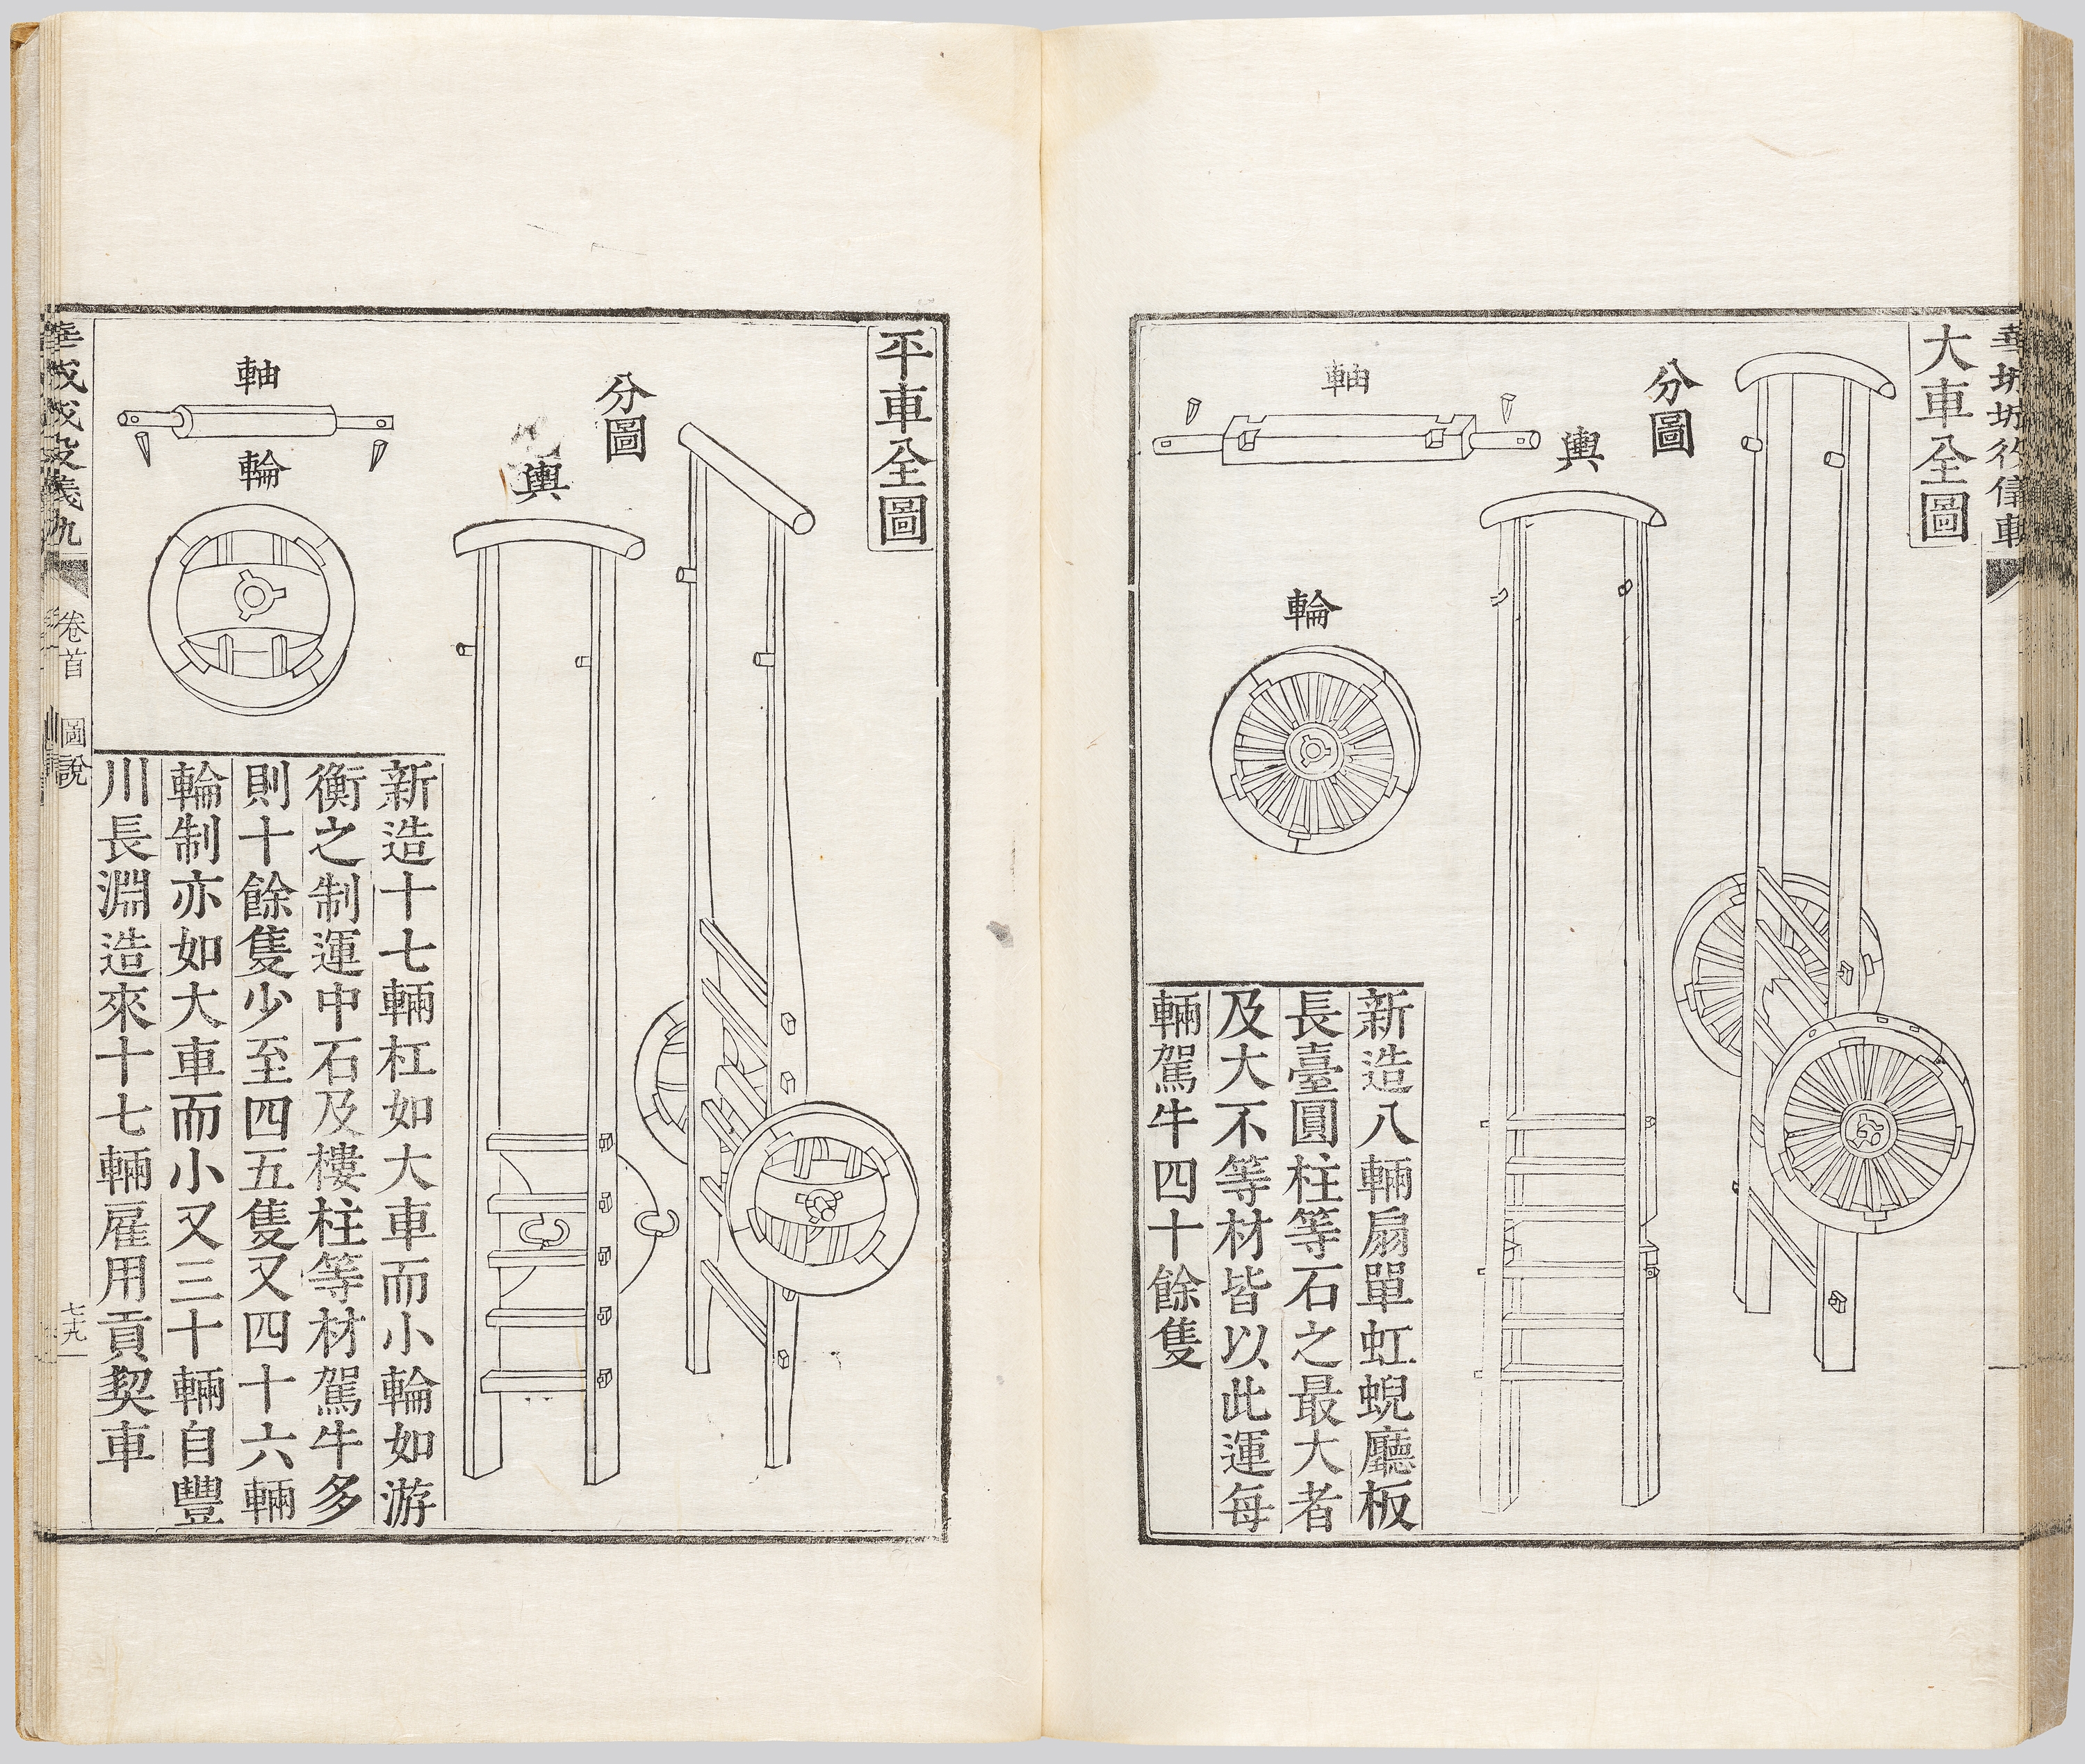 大車全圖
分圖
輿
軸
輪
新造八輛扇單虹蜺廳板
長臺圓柱等石之最大者
及大不等材皆以此運每
輛駕牛四十餘隻
平車全圖
分圖
輿
軸
輪
新造十七輛杠如大車而小輪如游
衡之制運中石及樓柱等材駕牛多
則十餘隻少至四五隻又四十六輛
輪制亦如大車而小又三十輛自豐
川長淵造來十七輛雇用貢契車
卷首
圖說
七十九